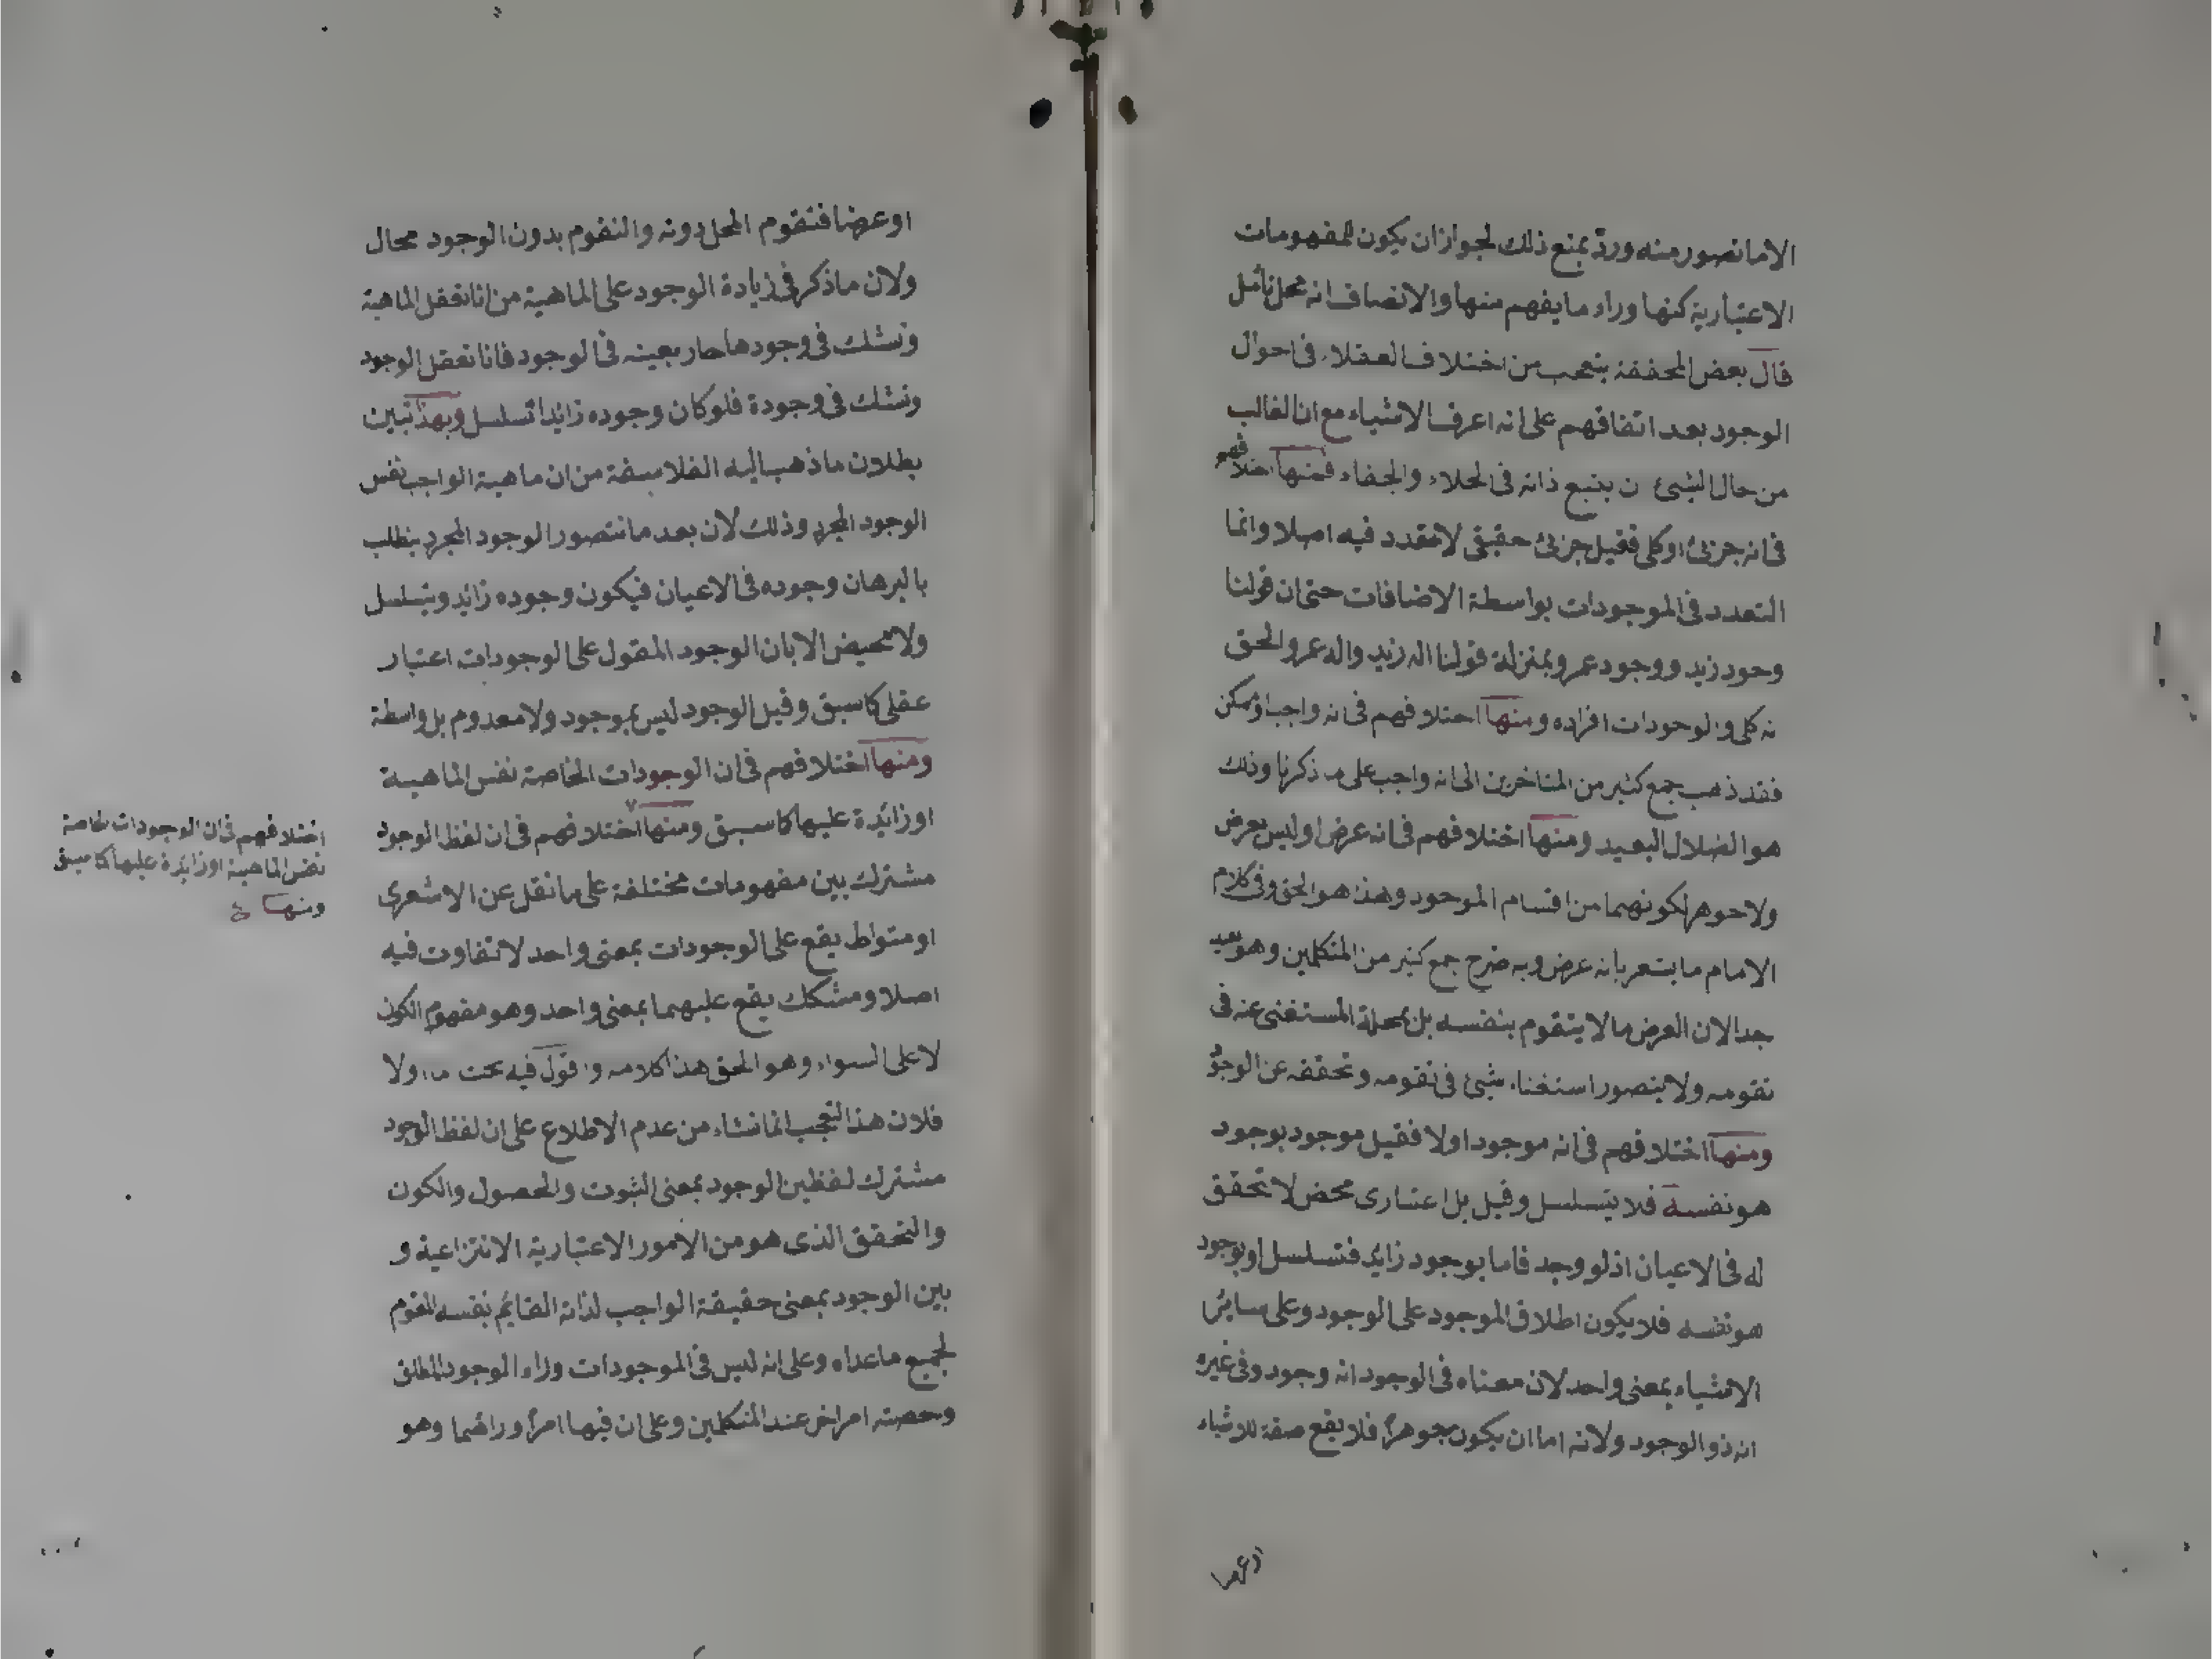 الاما تصور منه ورد بمنع ذلك لجواز ان يكون للمفهومات
الاعتبارية كنها وراء ما يفهم منها والانصاف انه محل تأمل
قال بعض المحققة يتعجب من اختلاف العقلاء في احوال
الوجود بعد اتفاقهم على انه اعرف الاشياء مع ان الغالب
من حال الشيئ ن يتبع ذاته في الجلاء والخفاء فمنها اختلافهم
في انه جزئ او كلي فقيل جزئ حقيقي لا تعدد فيه اصلا وانما
التعدد في الموجودات بواسطة الاضافات حتى ان قولنا
وجود زيد ووجود عمرو بمنزلة قولنا اله زيد واله عمرو الحق
نه كلي والوجودات افراده ومنها اختلافهم في انه واجب او ممكن
فقد ذهب جمع كثير من المتاخرين الى انه واجب على ما ذكرنا وذلك
هو الضلال البعيد ومنها اختلافهم في انه عرض او ليس بعرض
ولا جوهر لكونهما من اقسام الموجود وهذا هو الحق وفي كلام
الامام ما يشعر بانه عرض وبه صرح جمع كثير من المتكلمين وهو بعيد
جدا لان العرض ما لا يتقوم بنفسه بل بمحله المستغنى عنه في
تقومه ولا يتصور استغناء شيئ في تقومه وتحققه عن الوجود
ومنها اختلافهم في انه موجود اولا فقيل موجود بوجود
هو نفسه فلا يتسلسل وقيل بل اعتبارى محض لا تحقق
له في الاعيان اذ لو وجد فاما بوجود زايد فتسلسل او بوجود
هو نفسه فلا يكون اطلاق الموجود على الوجود وعلى سائر
الاشياء بمعنى واحد لان معناه في الوجود انه وجود وفي غيره
انه ذو الوجود ولانه اما ان يكون جوهرا فلا يقع صفة للاشياء
او عرضا
او عرضا فتقوم المحل دونه والتقوم بدون الوجود محال
ولان ما ذكر في زيادة الوجود على الماهية من انا نعقل الماهية
ونشك في وجودها جار بعينه في الوجود فانا نعقل الوجود
ونشك في وجودة فلو كان وجوده زايدا تسلسل وبهذا تبين
بطلان ما ذهب اليه الفلاسفة من ان ماهية الواجب نفس
الوجود المجرد وذلك لان بعد ما نتصور الوجود المجرد يطلب
بالبرهان وجوده في الاعيان فيكون وجوده زايد ويتسلسل
ولا محيص الا بان الوجود المقول على الوجودات اعتبار
عقلي كما سبق وقيل الوجود ليس بموجود ولا معدوم بل واسطة
ومنها اختلافهم في ان الوجودات الخاصة نفس الماهية
او زائدة عليها كما سبق ومنها اختلافهم في ان لفظ الوجود
مشترك بين مفهومات مختلفة على ما نقل عن الاشعرى
او متواطئ يقع على الوجودات بمعنى واحد لا تفاوت فيه
اصلا ومشكك يقع عليهما بمعنى واحد وهو مفهوم الكون
لا على السواء وهو الحق هذا كلامه واقول فيه بحث اما اولا
فلان هذا التعجب انما نشاء من عدم الاطلاع على ان لفظ الوجود
مشترك لفظ بين الوجود بمعنى الثبوت والحصول والكون
والتحقق الذى هو من الامور الاعتبارية الانتزاعية و
بين الوجود بمعنى حقيقة الواجب لذاته القائم بنفسه المقوم
لجميع ما عداه وعلى انه ليس في الموجودات وراء الوجود المطلق
وحصته امر اخر عند المتكلمين وعلى ان فيها امرا ورائهما وهو
اختلافهم في ان الوجودات الخاصة
نفس الماهية او زايدة عليها كما سبق
ومنها